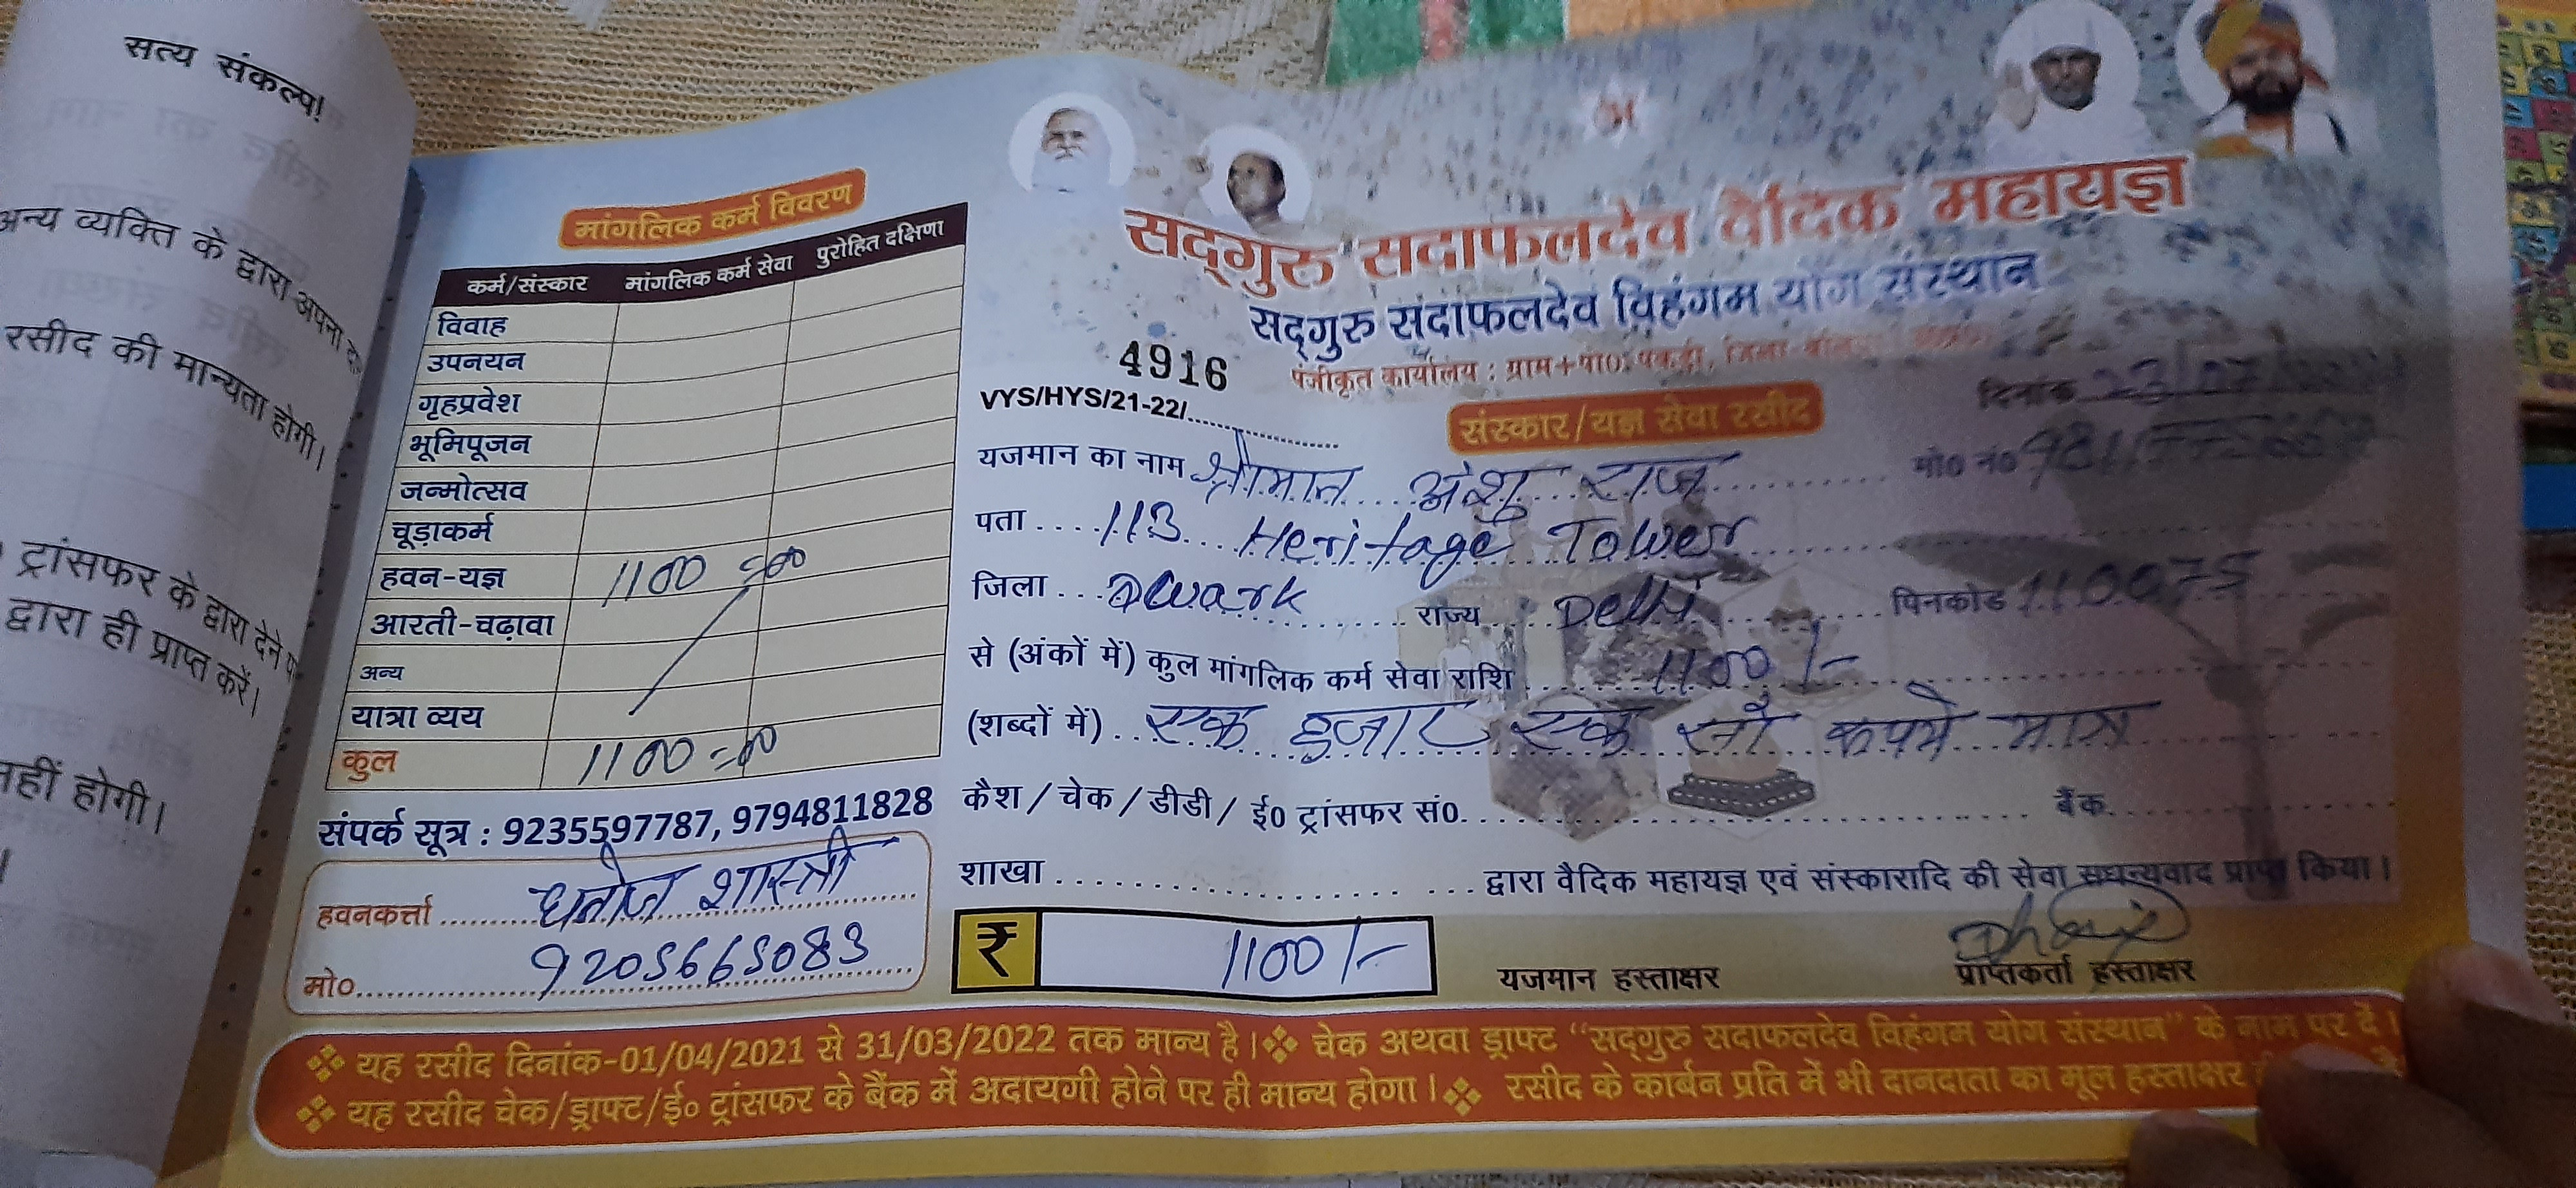 सत्य संकल्प!
अन्य व्यक्ति के द्वारा अपना
रसीद की मान्यता होगी।
ट्रांसफर के द्वारा देने
द्वारा ही प्राप्त करें।
नहीं होगी।
मांगलिक कर्म विवरण
कर्म/संस्कार मांगलिक कर्म सेवा पुरोहित दक्षिणा
विवाह
उपनयन
गृहप्रवेश
भूमिपूजन
जन्मोत्सव
चूड़ाकर्म
हवन-यज्ञ 1100=00
आरती-चढ़ावा
अन्य
यात्रा व्यय
कुल 1100=00
संपर्क सूत्र : 9235597787, 9794811828
हवनकर्त्ता शास्त्री
मो० 9205665083
सद्गुरु सदाफलदेव वैदिक महायज्ञ
सद्गुरु सदाफलदेव विहंगम योग संस्थान
पंजीकृत कार्यालय : ग्राम+पो० पकड़ी, जिला
4916
VYS/HYS/21-22/
दिनांक 23/07/
संस्कार/यज्ञ सेवा रसीद
यजमान का नाम श्रीमान अंशु राज मो० नं०
पता 113 Heritage Tower
जिला Dwark राज्य Delhi पिनकोड 110075
से (अंकों में) कुल मांगलिक कर्म सेवा राशि 1100/-
(शब्दों में) एक हजार एक सौ रुपये मात्र
कैश / चेक / डीडी / ई० ट्रांसफर सं० बैंक
शाखा द्वारा वैदिक महायज्ञ एवं संस्कारादि की सेवा सधन्यवाद प्राप्त किया।
₹ 1100/-
यजमान हस्ताक्षर प्राप्तकर्ता हस्ताक्षर
❖ यह रसीद दिनांक-01/04/2021 से 31/03/2022 तक मान्य है। ❖ चेक अथवा ड्राफ्ट “सद्गुरु सदाफलदेव विहंगम योग संस्थान” के नाम पर दें।
❖ यह रसीद चेक/ड्राफ्ट/ई० ट्रांसफर के बैंक में अदायगी होने पर ही मान्य होगा। ❖ रसीद के कार्बन प्रति में भी दानदाता का मूल हस्ताक्षर